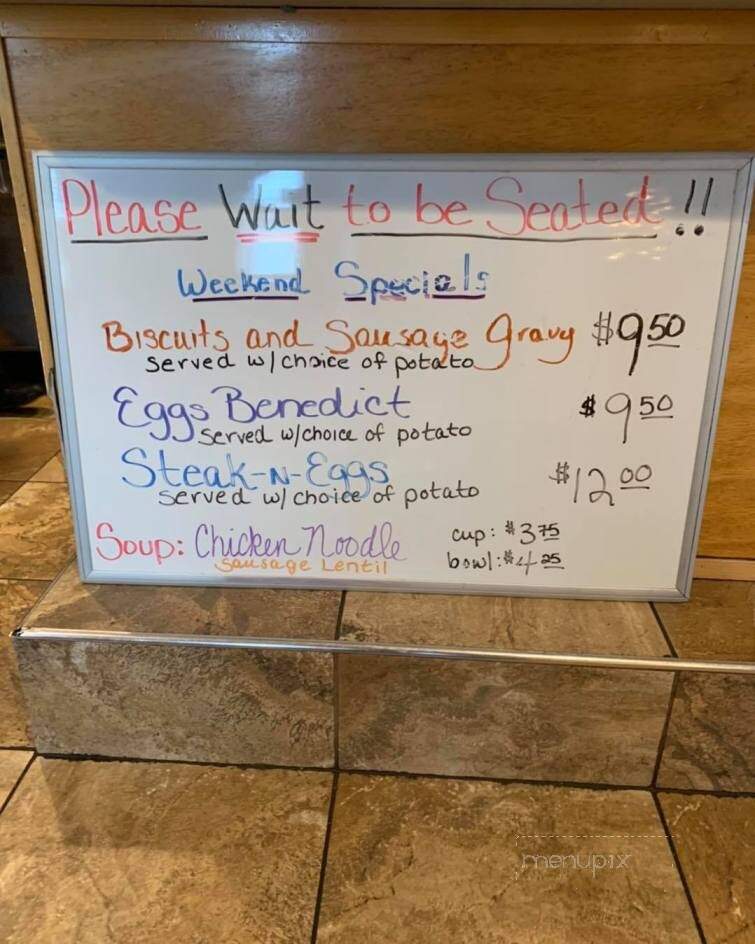 Please Wait to be Seated!!
Weekend Specials
Biscuits and Sausage Gravy $9.50
served w/choice of potato
Eggs Benedict $9.50
served w/choice of potato
Steak-N-Eggs $12.00
served w/ choice of potato
Soup: Chicken Noodle cup: $3.75
Sausage Lentil bowl: $4.25
menupix